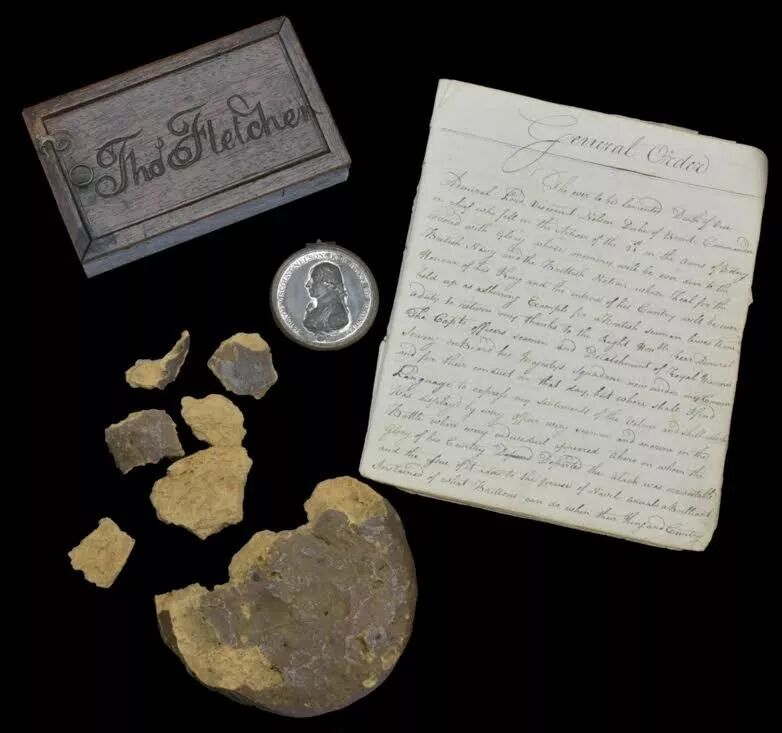 Thos Fletcher
General Order
The ever to be lamented Death of Our
Admiral Lord Viscount Nelson Duke of Bronti Commander
in Chief who fell in the Action of the in the arms of Victory
covered with Glory whose memory will be ever dear to the
British Navy and the Brittish Nation whose Zeal for the
Honour of his King and the interest of his Country will be ever
held up as a shining Example for a Brittish seaman leaves to me
a duty to return my thanks to the Right Honble Rear Admiral
The Captns officers seamen and Detachment of Royal Marines
serving onboard his Majestys Squadron now under my Comman
and for their conduct on that day, but where shall I find
Language to express my sentiments of the Valour and skill which
Was display'd by every officer every seaman and marine in the
Battle where every individual appeared a hero on whom the
Glory of his Country Depended the attack was irresistable
and the of it adds to the of Naval annals a Brilliant
of what Brittons can do when their King and Country